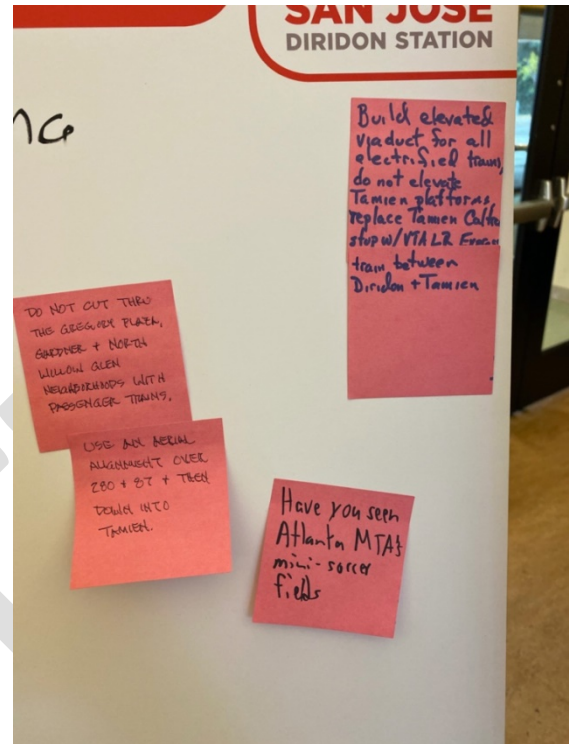 SAN JOSE
DIRIDON STATION
NG
Build elevated
viaduct for all
electrified trains,
do not elevate
Tamien platforms,
replace Tamien Caltrain
stop w/VTA LR
train between
Diridon + Tamien
DO NOT CUT THRU
THE GREGORY PLAZA,
GARDNER + NORTH
WILLOW GLEN
NEIGHBORHOODS WITH
PASSENGER TRAINS.
USE AN AERIAL
ALIGNMENT OVER
280 + 87 + THEN
DOWN INTO
TAMIEN.
Have you seen
Atlanta MTA's
mini-soccer
fields